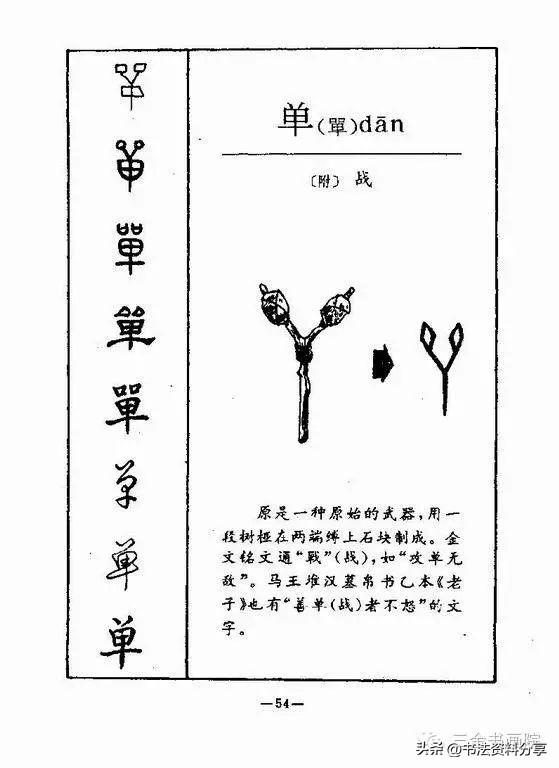 單
單
單
單
單
单
单
单
单(單)dān
〔附〕 战
原是一种原始的武器，用一
段树桠在两端缚上石块制成。金
文铭文通“戰”(战)，如“攻单无
敌”。马王堆汉墓帛书乙本《老
子》也有“善单(战)者不怒”的文
字。
—54—
三余书画院
头条 @书法资料分享